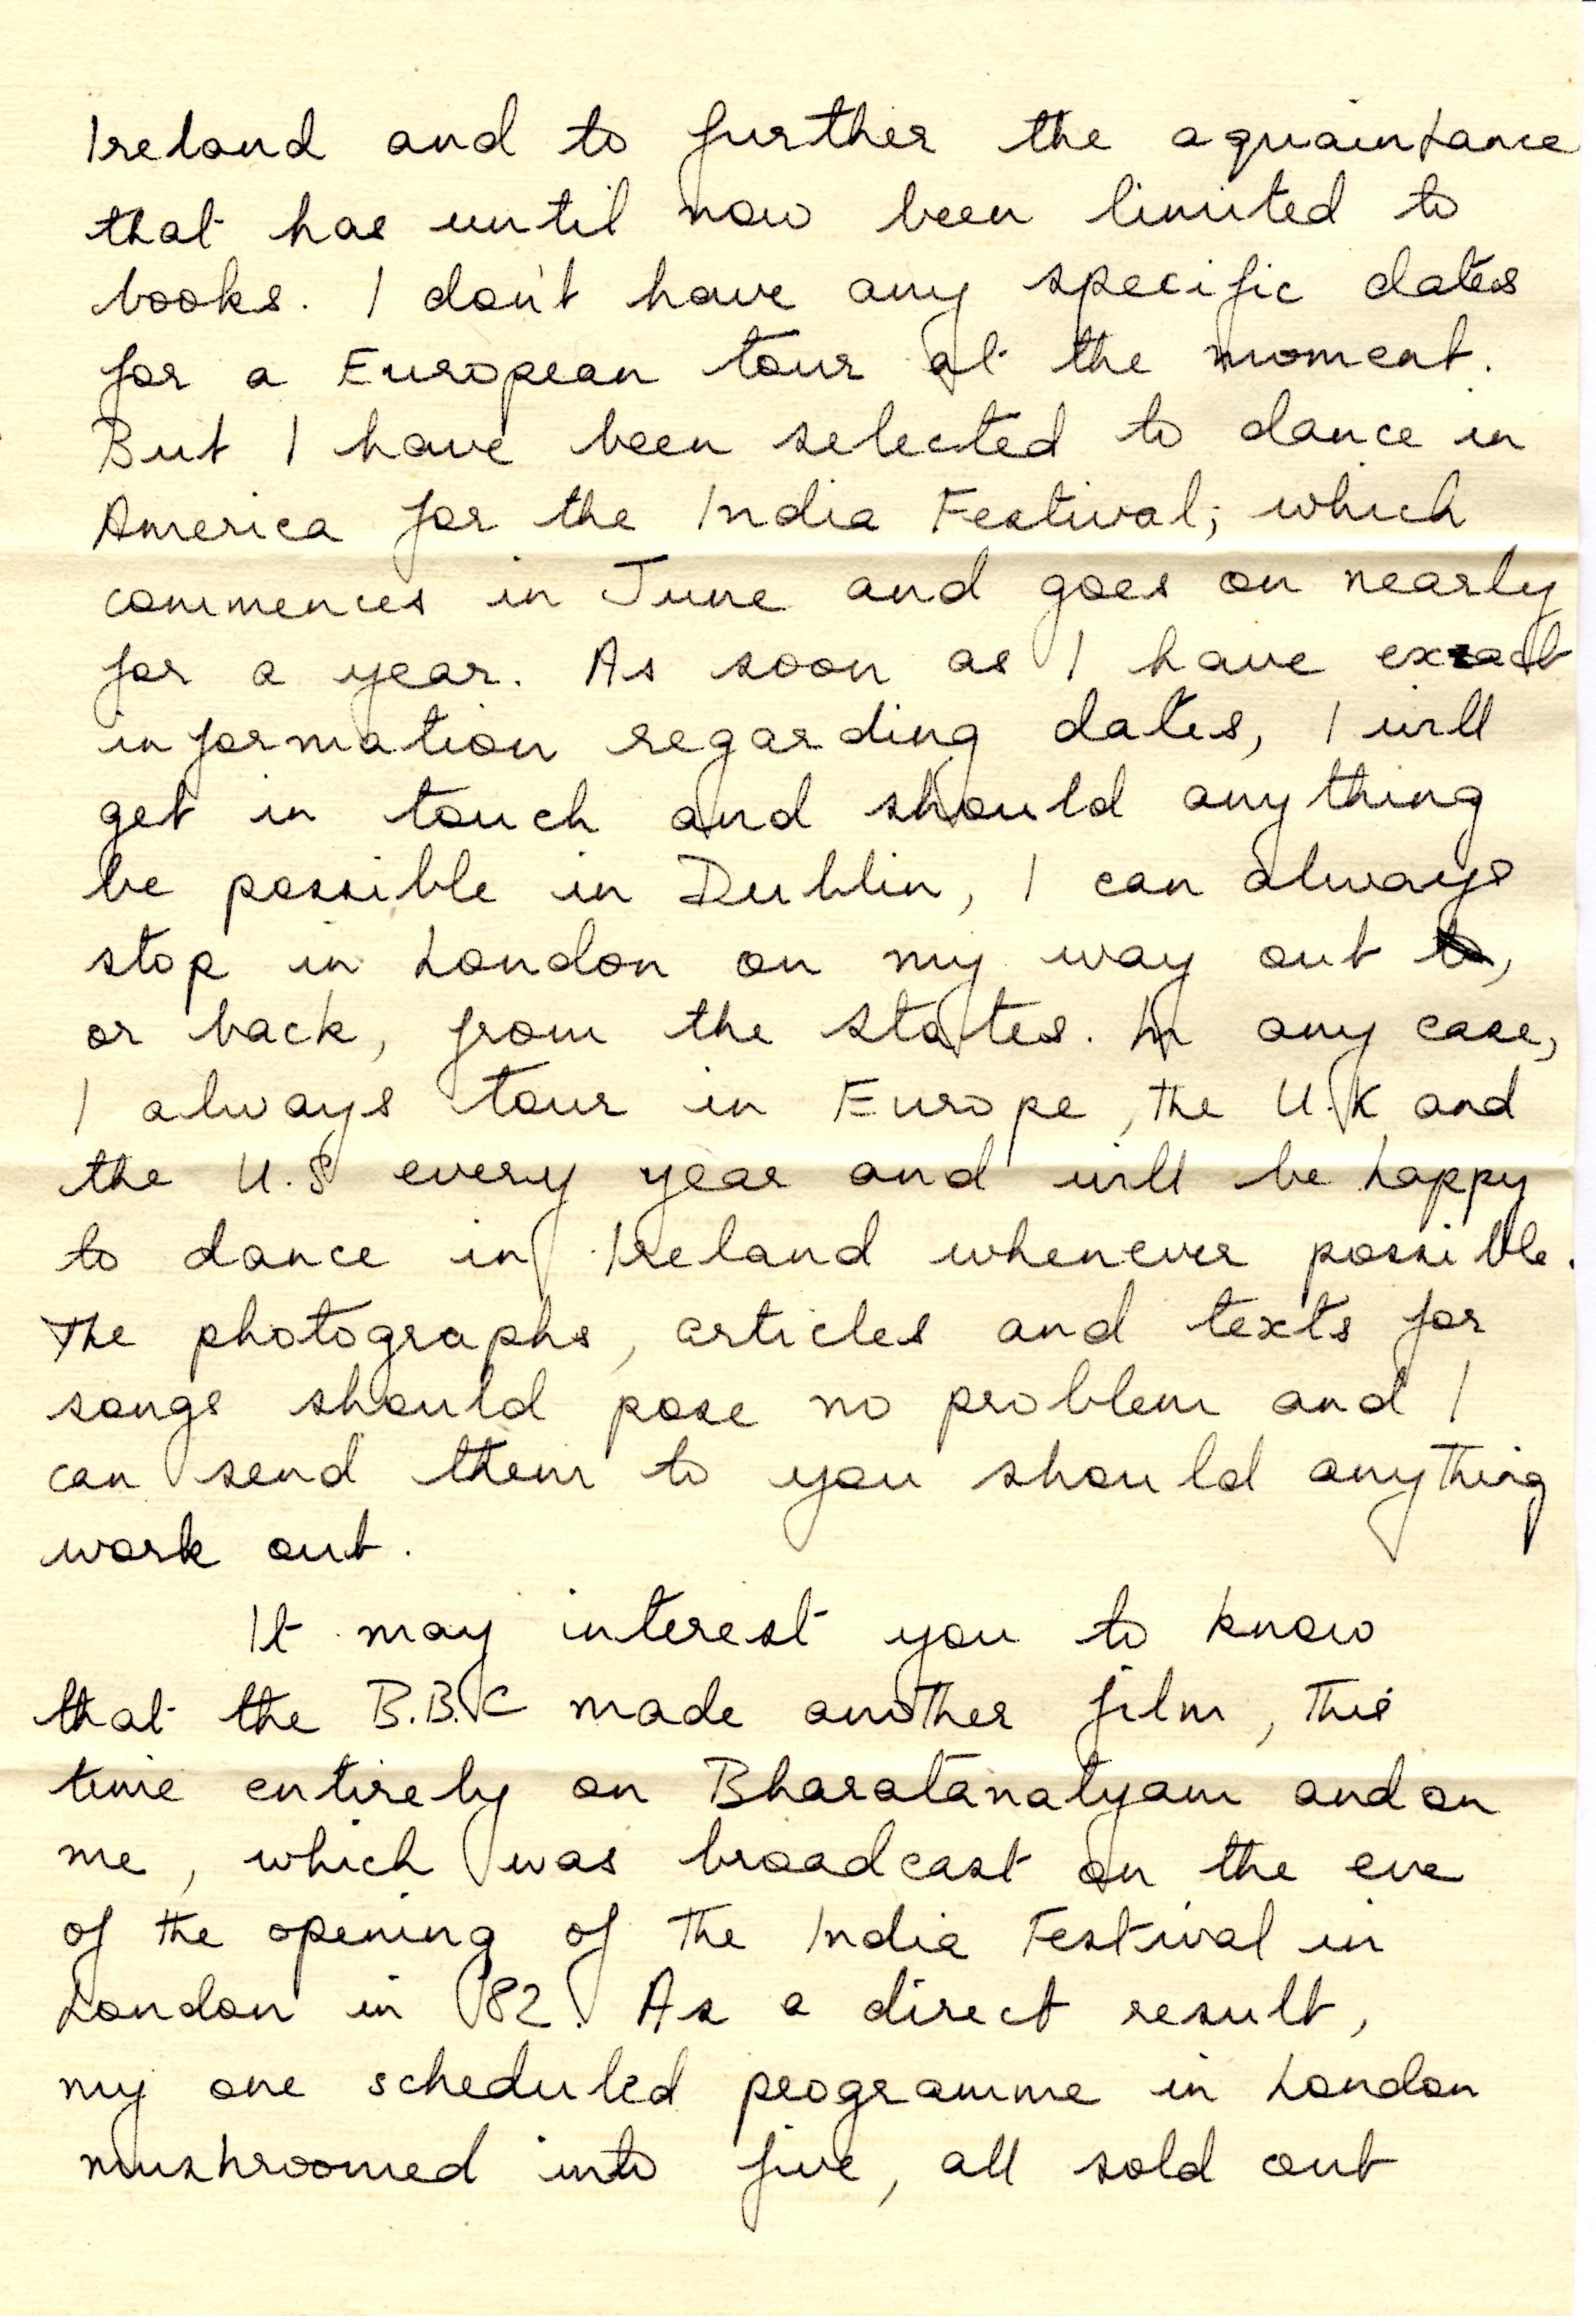 Ireland and to further the aquaintance
that has until now been limited to
books. I don't have any specific dates
for a European tour at the moment.
But I have been selected to dance in
America for the India Festival; which
commences in June and goes on nearly
for a year. As soon as I have exact
information regarding dates, I will
get in touch and should anything
be possible in Dublin, I can always
stop in London on my way out to,
or back, from the states. In any case,
I always tour in Europe, the U.K and
the U.S every year and will be happy
to dance in Ireland whenever possible.
The photographs, articles and texts for
songs should pose no problem and I
can send them to you should anything
work out.
It may interest you to know
that the B.B.C made another film, this
time entirely on Bharatanatyam and on
me, which was broadcast on the eve
of the opening of the India Festival in
London in '82. As a direct result,
my one scheduled programme in London
mushroomed into five, all sold out